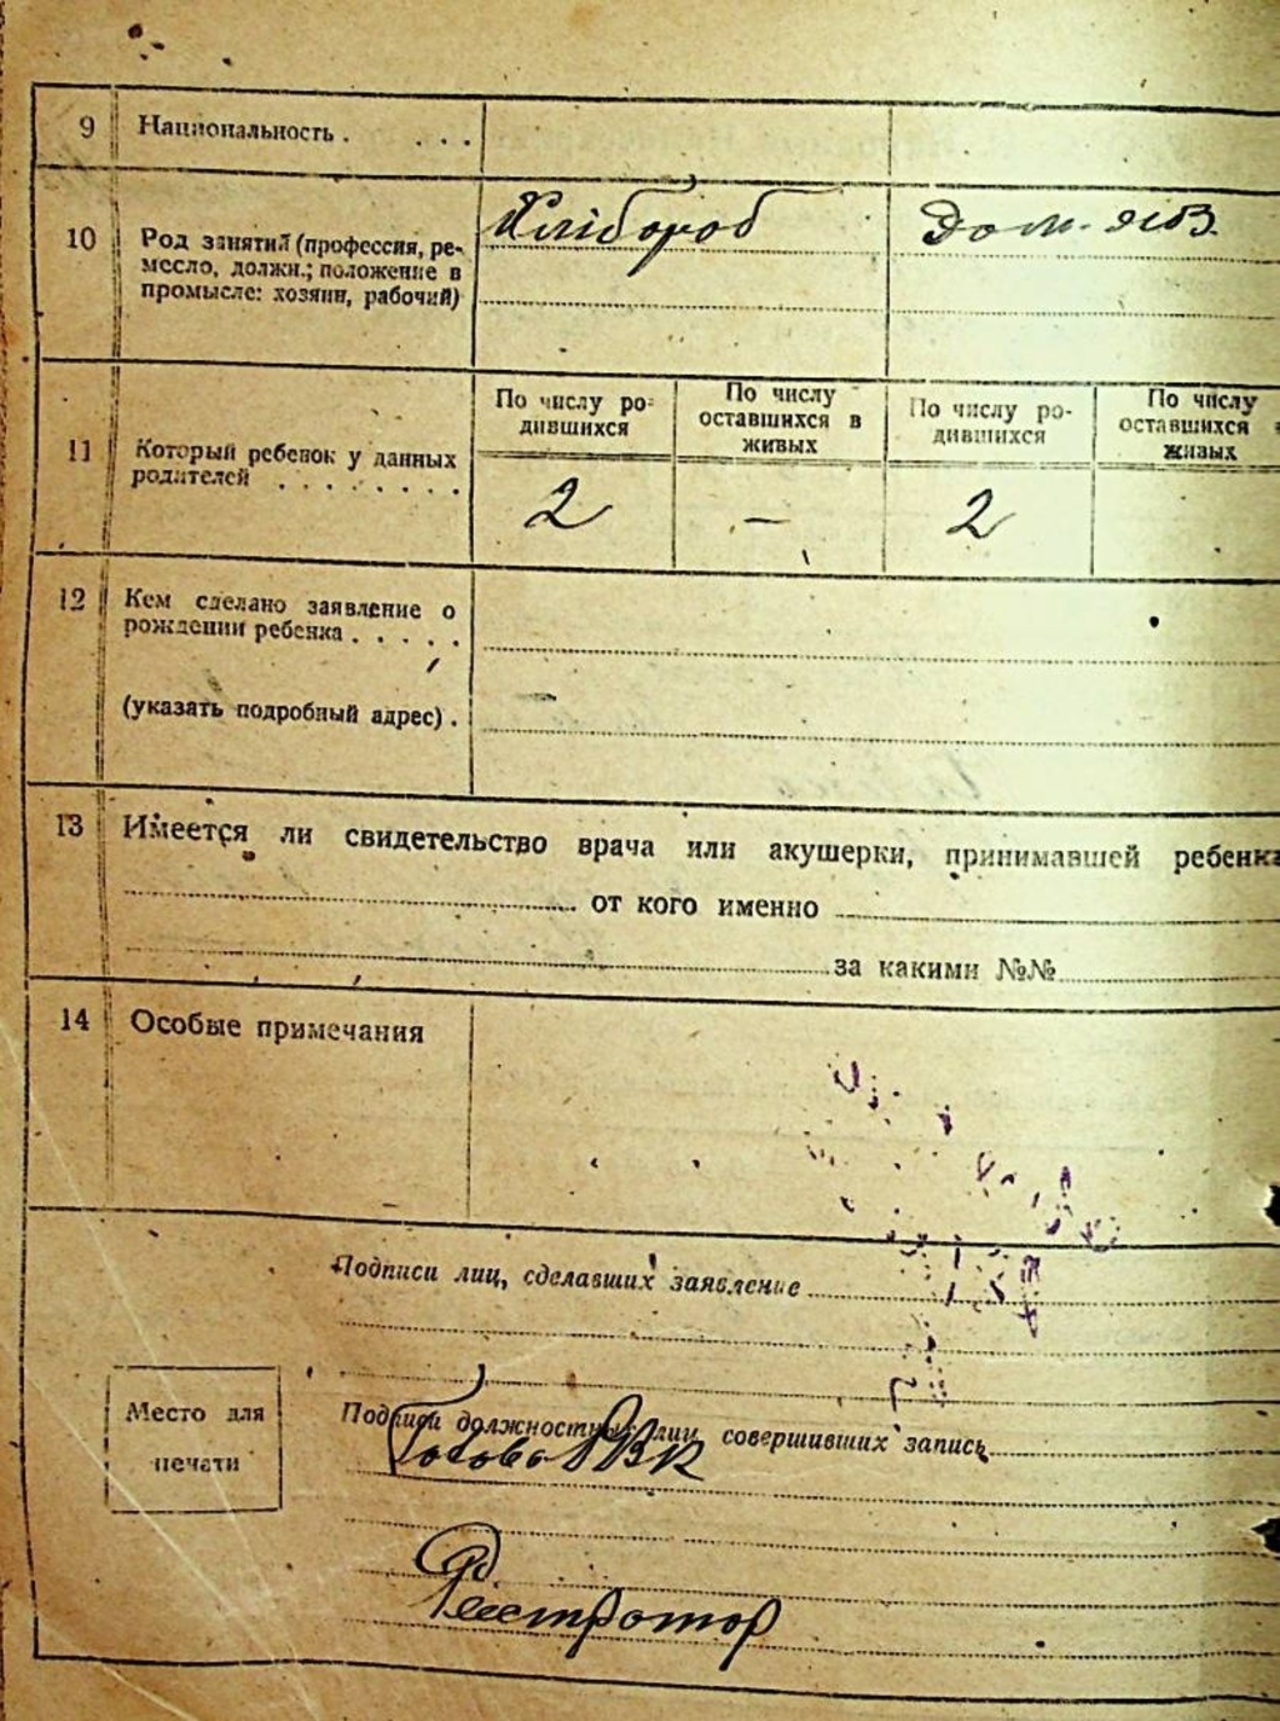 9 Национальность . . . .
Хлібороб Дом.
10 Род занятий (профессия, ре-
месло, должн.; положение в
промысле: хозяин, рабочий)
По числу ро- По числу По числу ро- По числу
дившихся оставшихся в дившихся оставшихся
живых живых
11 Который ребенок у данных
родителей . . . . . . . .
2 — 2
12 Кем сделано заявление о
рождении ребенка . . . . .
(указать подробный адрес) .
13 Имеется ли свидетельство врача или акушерки, принимавшей ребенка
от кого именно
за какими №№
14 Особые примечания
Подписи лиц, сделавших заявление
Место для
печати
Подписи должностных лиц совершивших запись
Голова ВК
Реєстратор